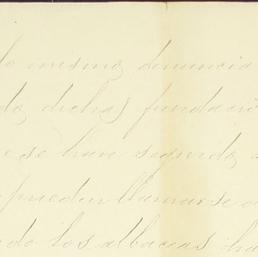 lo mismo, denuncia
do, dichas fundació
e se han seguido,
pueden llamarse
do los albaceas ha